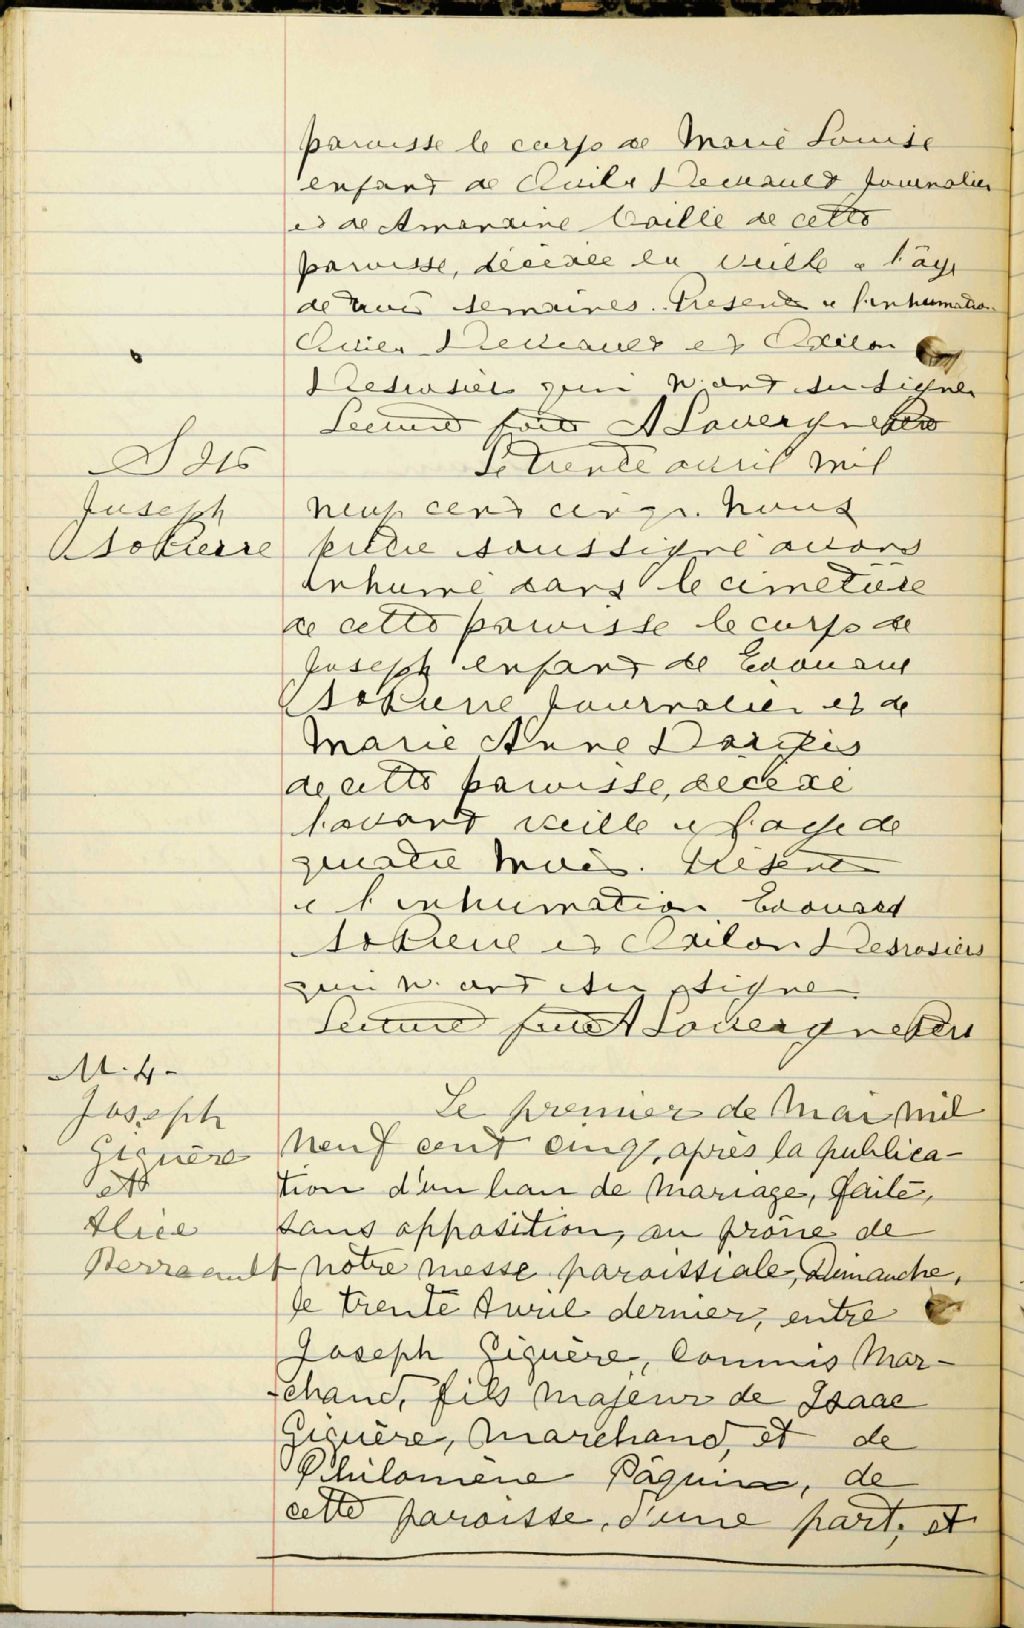 paroisse le corps de Marie Louise
enfant de journalier
et de Amandine de cette
paroisse, décédée la veille a l'âge
de trois semaines. Présents a l'inhumation
et Exilon
Desrosiers qui n'ont su signer
Lecture faite A Lavergne Ptre
S 26
Joseph
St Pierre
Le trente avril mil
neuf cent cinq. Nous
prêtre soussigné avons
inhumé dans le cimetière
de cette paroisse le corps de
Joseph enfant de Edouard
St Pierre journalier et de
Marie Anne Dargis
de cette paroisse, décédé
l'avant veille a l'age de
quatre mois. Présents
a l'inhumation Edouard
St Pierre et Exilon Desrosiers
qui n'ont su signer
Lecture faite A Lavergne Ptre
M. 4-
Joseph
Giguère
et
Alice
Perreault
Le premier de Mai mil
neuf cent cinq, après la publica-
tion d'un ban de mariage, faite,
sans opposition, au prône de
nôtre messe paroissiale, Dimanche,
le trente Avril dernier, entre
Joseph Giguère, Commis Mar-
-chand, fils majeur de Isaac
Giguère, Marchand, et de
Philomène Pâquin, de
cette paroisse, d'une part; et